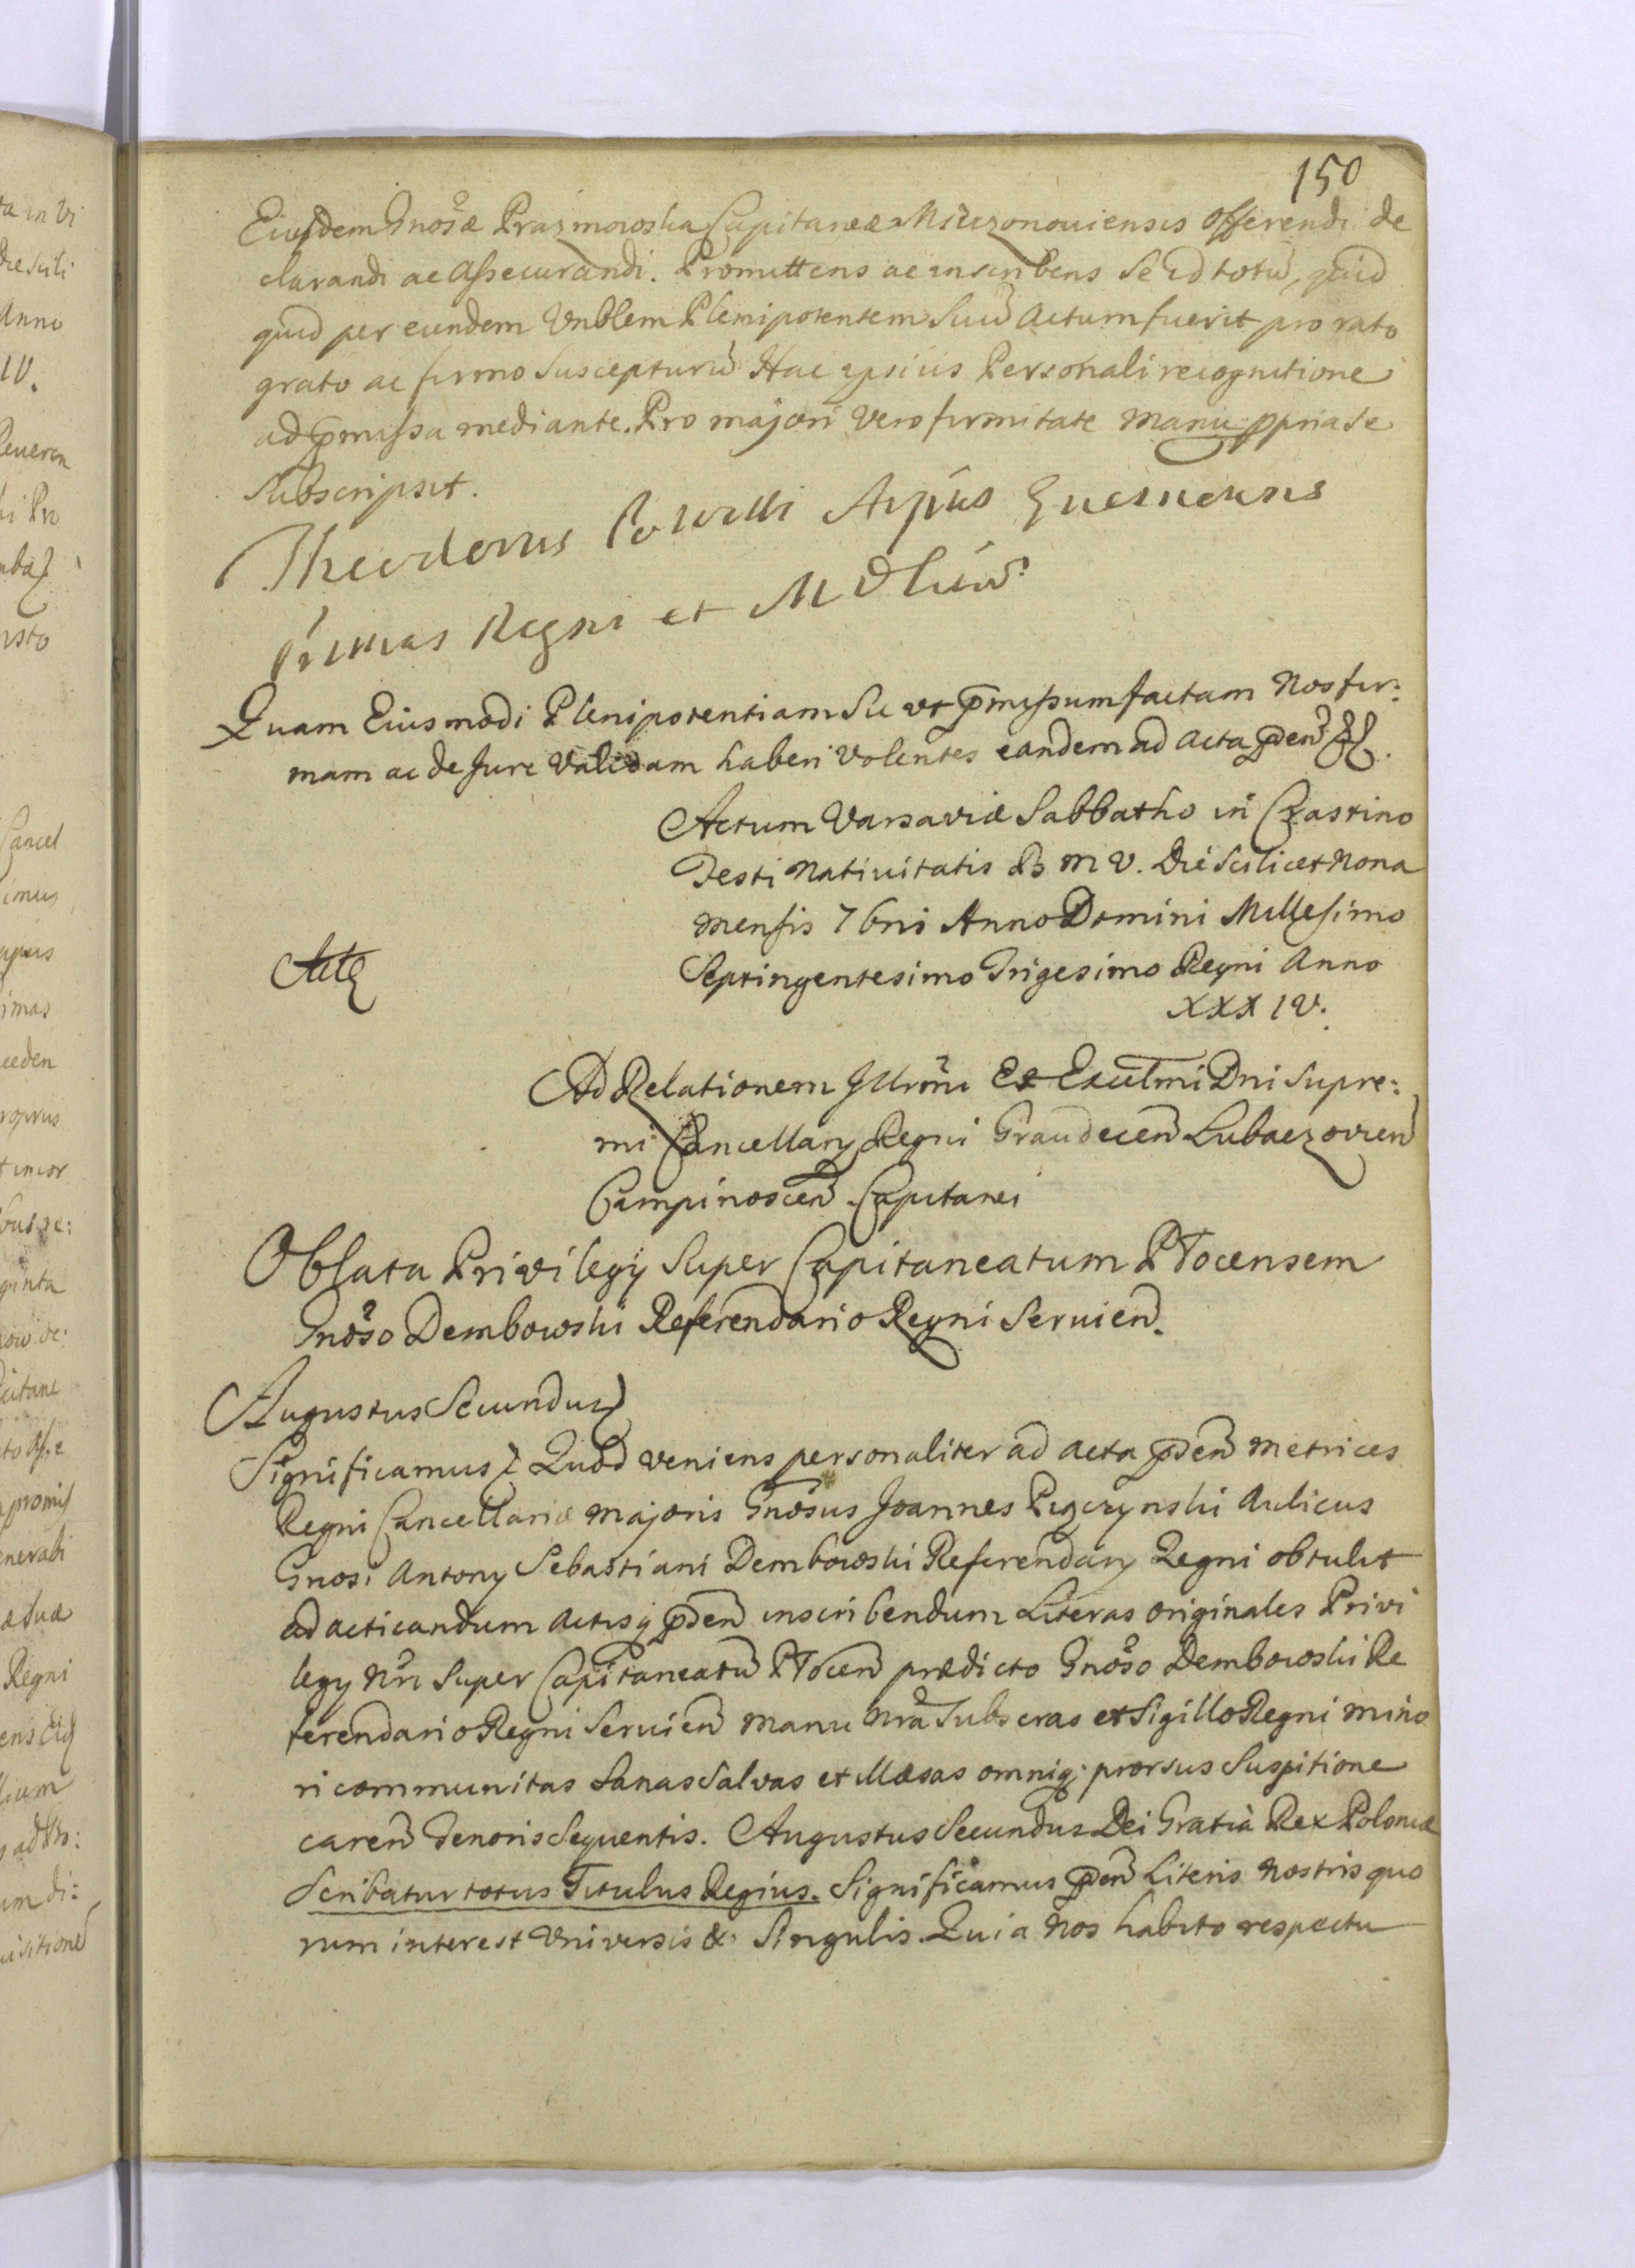 150
Eiusdem Gnosæ Prazmowska Capitaneæ Miczonouiensis offerendi de
clarandi ac assecurandi. Promittens ac inscribens se id totũ, quid
quid per eundem Vnblem Plenipotentem Suũ actum fuerit pro rato
grato ac firmo suscepturũ Hac ipsius Personali recognitione
ad pmissa mediante. Pro majori vero firmitate manu ppria se
subscripsit.
Theodorus Potocki Arpũs Gnesnensis
Primas Regni et M D Lit
Quam Eiusmodi Plenipotentiam Sic vt pmissum factam Nos fir:
mam ac de Jure Validam haberi Volentes eandem ad Acta pden
Actum Varsaviæ Sabbatho in Crastino
Festi Nativitatis B M V. Die Scilicet Nona
Mensis 7bris Anno Domini Millesimo
Septingentesimo Trigesimo Regni Anno
XXXIV.
Ad Relationem Illrmi Et Excellmi Dni Supre:
mi Cancellarÿ Regni Graudecen Lubaczovien
Campinoscen Capitanei
Oblata Privilegÿ Super Capitaneatum Plocensem
Gnoso Dembowski Referendario Regni Seruien.
Augustus Secundus
Significamus Quod veniens personaliter ad acta pden Metrices
Regni Cancellariæ majoris Gnosus Joannes Pęczynski Aulicus
Gnosi Antonÿ Sebastiani Dembowski Referendarÿ Regni obtulit
ad acticandum actisq pden inscribendum Literas originales Privi
legÿ Nri Super Capitaneatũ Plocen prædicto Gnoso Dembowski Re
ferendario Regni Seruien manu Nra Subscras et Sigillo Regni mino
ri communitas Sanas Salvas et Illæsas omniq; prorsus Suspitione
caren Tenoris Sequentis. Augustus Secundus Dei Gratia Rex Poloniæ
Scribatur totus Titulus Regius. Significamus pden Literis Nostris quo
rum interest Vniversis & Singulis. Quia Nos habito respectu